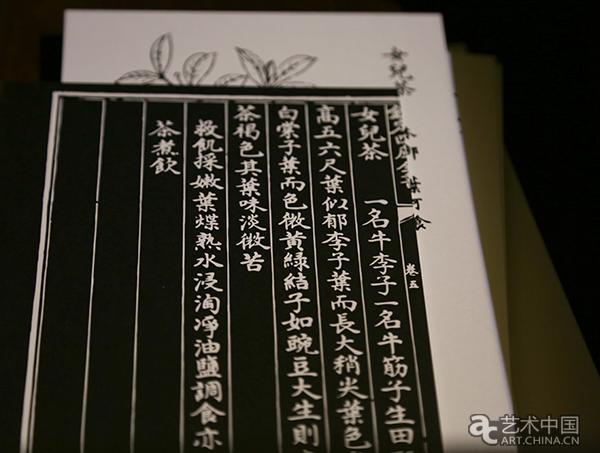 女兒茶
葉可食
卷五
女兒茶
一名牛李子一名牛筋子生田
高五六尺葉似郁李子葉而長大稍尖葉色
白棠子葉而色微黃綠結子如豌豆大生則
茶褐色其葉味淡微苦
救飢採嫩葉煠熟水浸淘凈油鹽調食亦
茶煮飲
艺术中国
ART.CHINA.CN